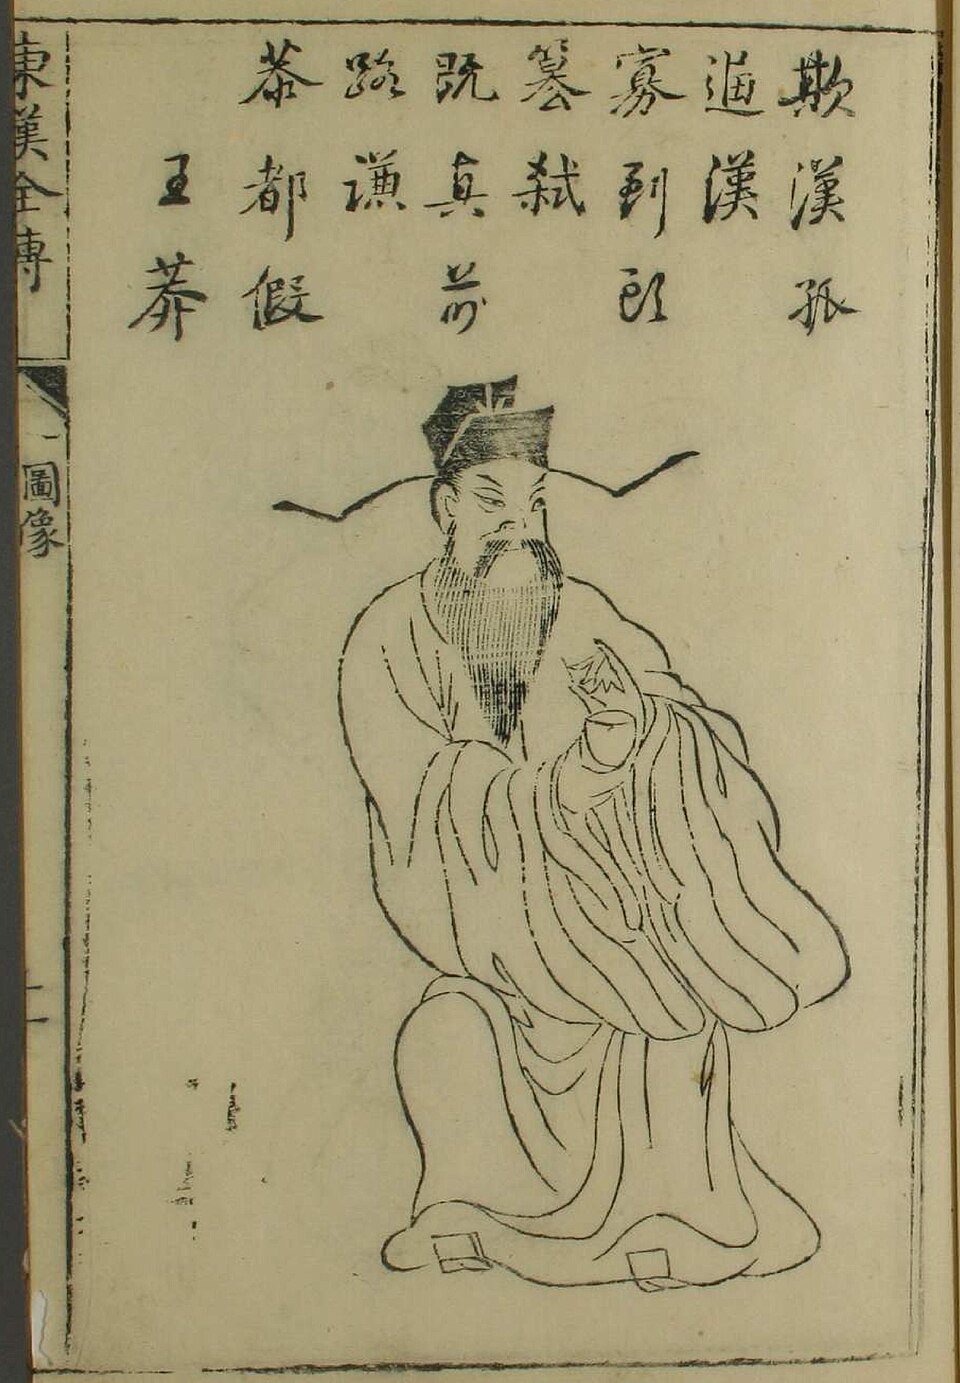 欺漢孤
逼漢
寡到頭
篡弒
既真前
路謙
恭都假
王莽
東漢全傳
圖像